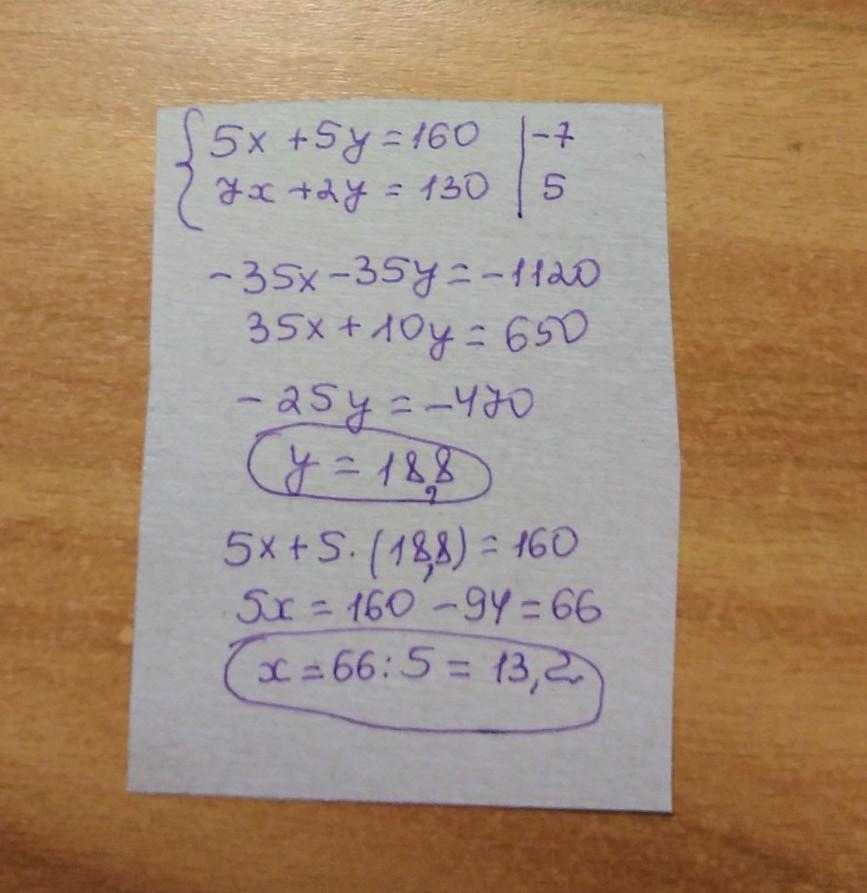 { 5x + 5y = 160 | -7
7x + 2y = 130 | 5
-35x - 35y = -1120
35x + 10y = 650
-25y = -470
y = 18,8
5x + 5 · (18,8) = 160
5x = 160 - 94 = 66
x = 66 : 5 = 13,2